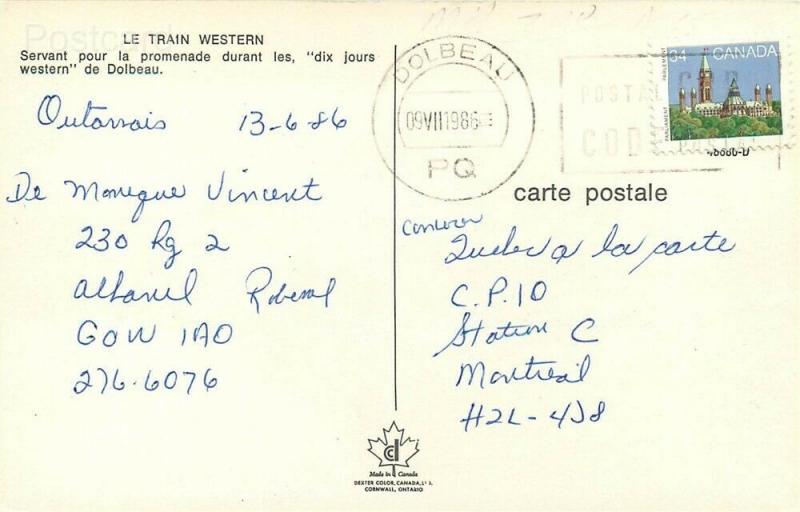 Postcard
LE TRAIN WESTERN
Servant pour la promenade durant les, "dix jours
western" de Dolbeau.
Outaouais 13-6-86
De Monique Vincent
230 Rg 2
Albanel Roberval
GOW 1AO
276-6076
DOLBEAU
09VII1986
PQ
POSTAL
CODE POSTAL
64 CANADA
PARLEMENT
PARLIAMENT
carte postale
Concour
Quebec a la carte
C.P. 10
Station C
Montreal
H2L-4J8
Made in Canada
DEXTER COLOR, CANADA, LTD.
CORNWALL, ONTARIO